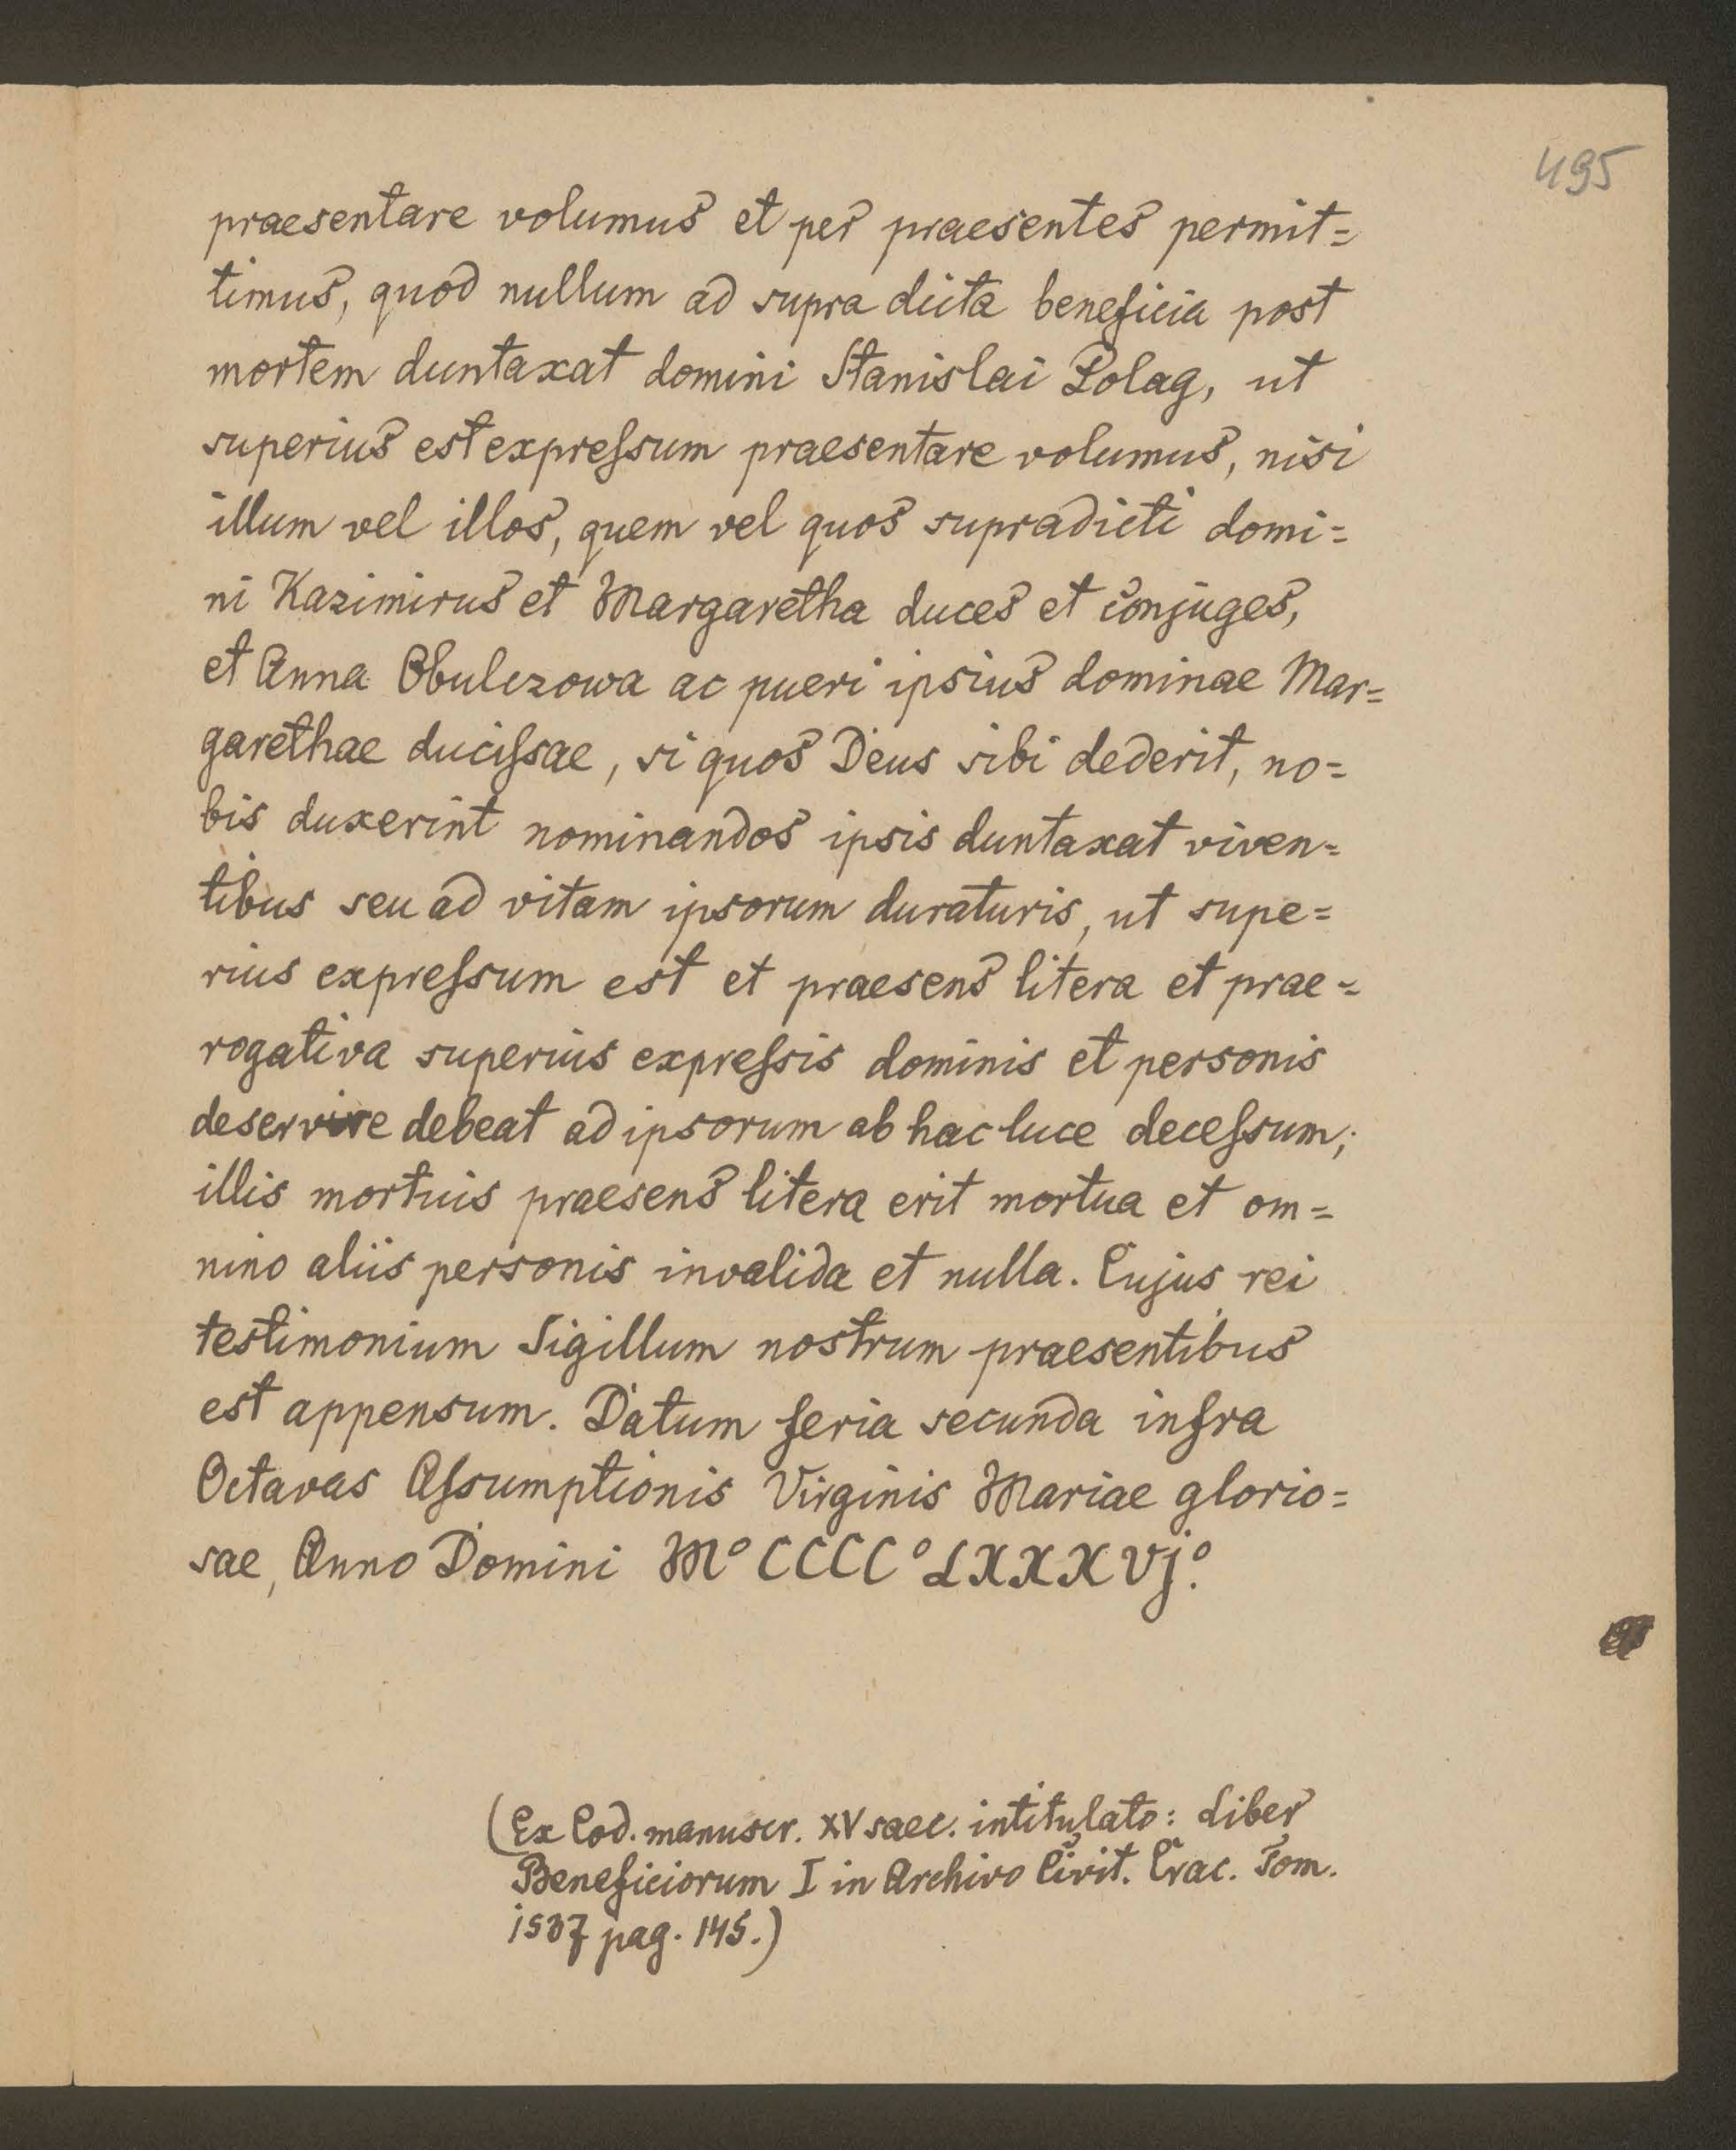 495
praesentare volumus et per praesentes permit=
timus, quod nullum ad supra dicta beneficia post
mortem duntaxat domini Stanislai Polag, ut
superius est expreſsum praesentare volumus, nisi
illum vel illos, quem vel quos supradicti domi=
ni Kazimirus et Margaretha duces et conjuges,
et Anna Obulczowa ac pueri ipsius dominae Mar=
garethae duciſsae, si quos Deus sibi dederit, no=
bis duxerint nominandos ipsis duntaxat viven=
tibus seu ad vitam ipsorum duraturis, ut supe=
rius expreſsum est et praesens litera et prae=
rogativa superius expreſsis dominis et personis
deservire debeat ad ipsorum ab hac luce deceſsum;
illis mortuis praesens litera erit mortua et om=
nino aliis personis invalida et nulla. Cujus rei
testimonium Sigillum nostrum praesentibus
est appensum. Datum feria secunda infra
Octavas Aſsumptionis Virginis Mariae glorio=
sae, Anno Domini M° CCCC° LXXXVj°.
(Ex Cod. manuscr. XV saec. intitulato: Liber
Beneficiorum I in Archivo Civit. Crac. Tom.
1537 pag. 145.)